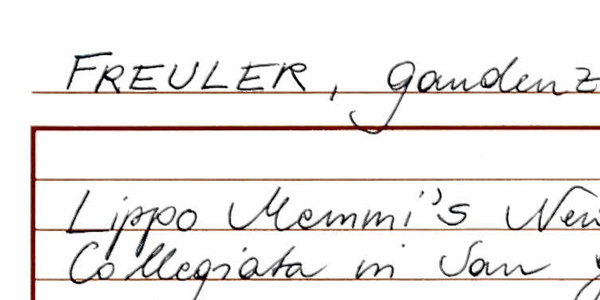 FREULER, Gaudenz
Lippo Memmi's New
Collegiata in San G